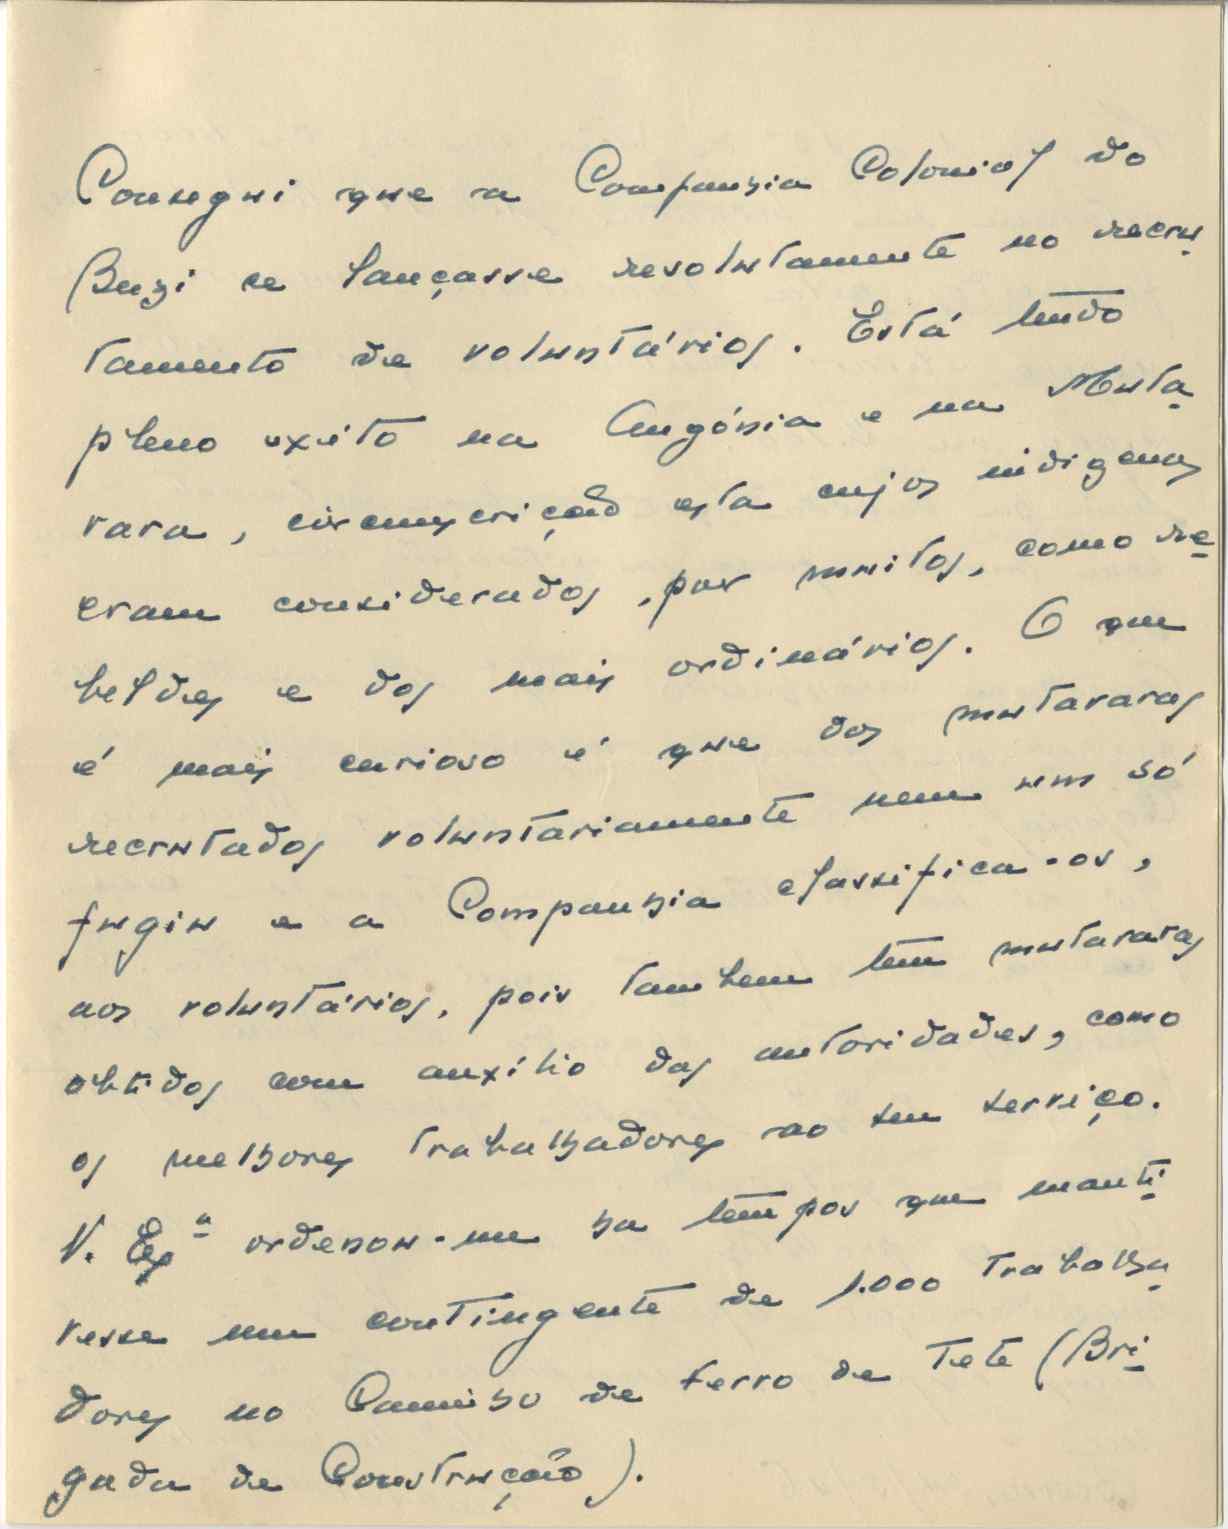 Consegui que a Companhia Colonial do
Buzi se lançasse resolutamente no recru-
tamento de voluntários. Está tendo
pleno exito na Angónia e na Muta-
rara, circunscrição esta cujos indigenas
eram considerados, por muitos, como re-
beldes e dos mais ordinários. O que
é mais curioso é que dos mutararas
recrutados voluntariamente nem um só
fugiu e a Companhia classifica-os,
aos voluntários, pois tambem tem mutararas
obtidos com auxílio das autoridades, como
os melhores trabalhadores ao seu serviço.
V. Exª ordenou-me ha tempos que manti-
vesse um contingente de 1.000 trabalha-
dores no Caminho de ferro de Tete (Bri-
gada de Construção).